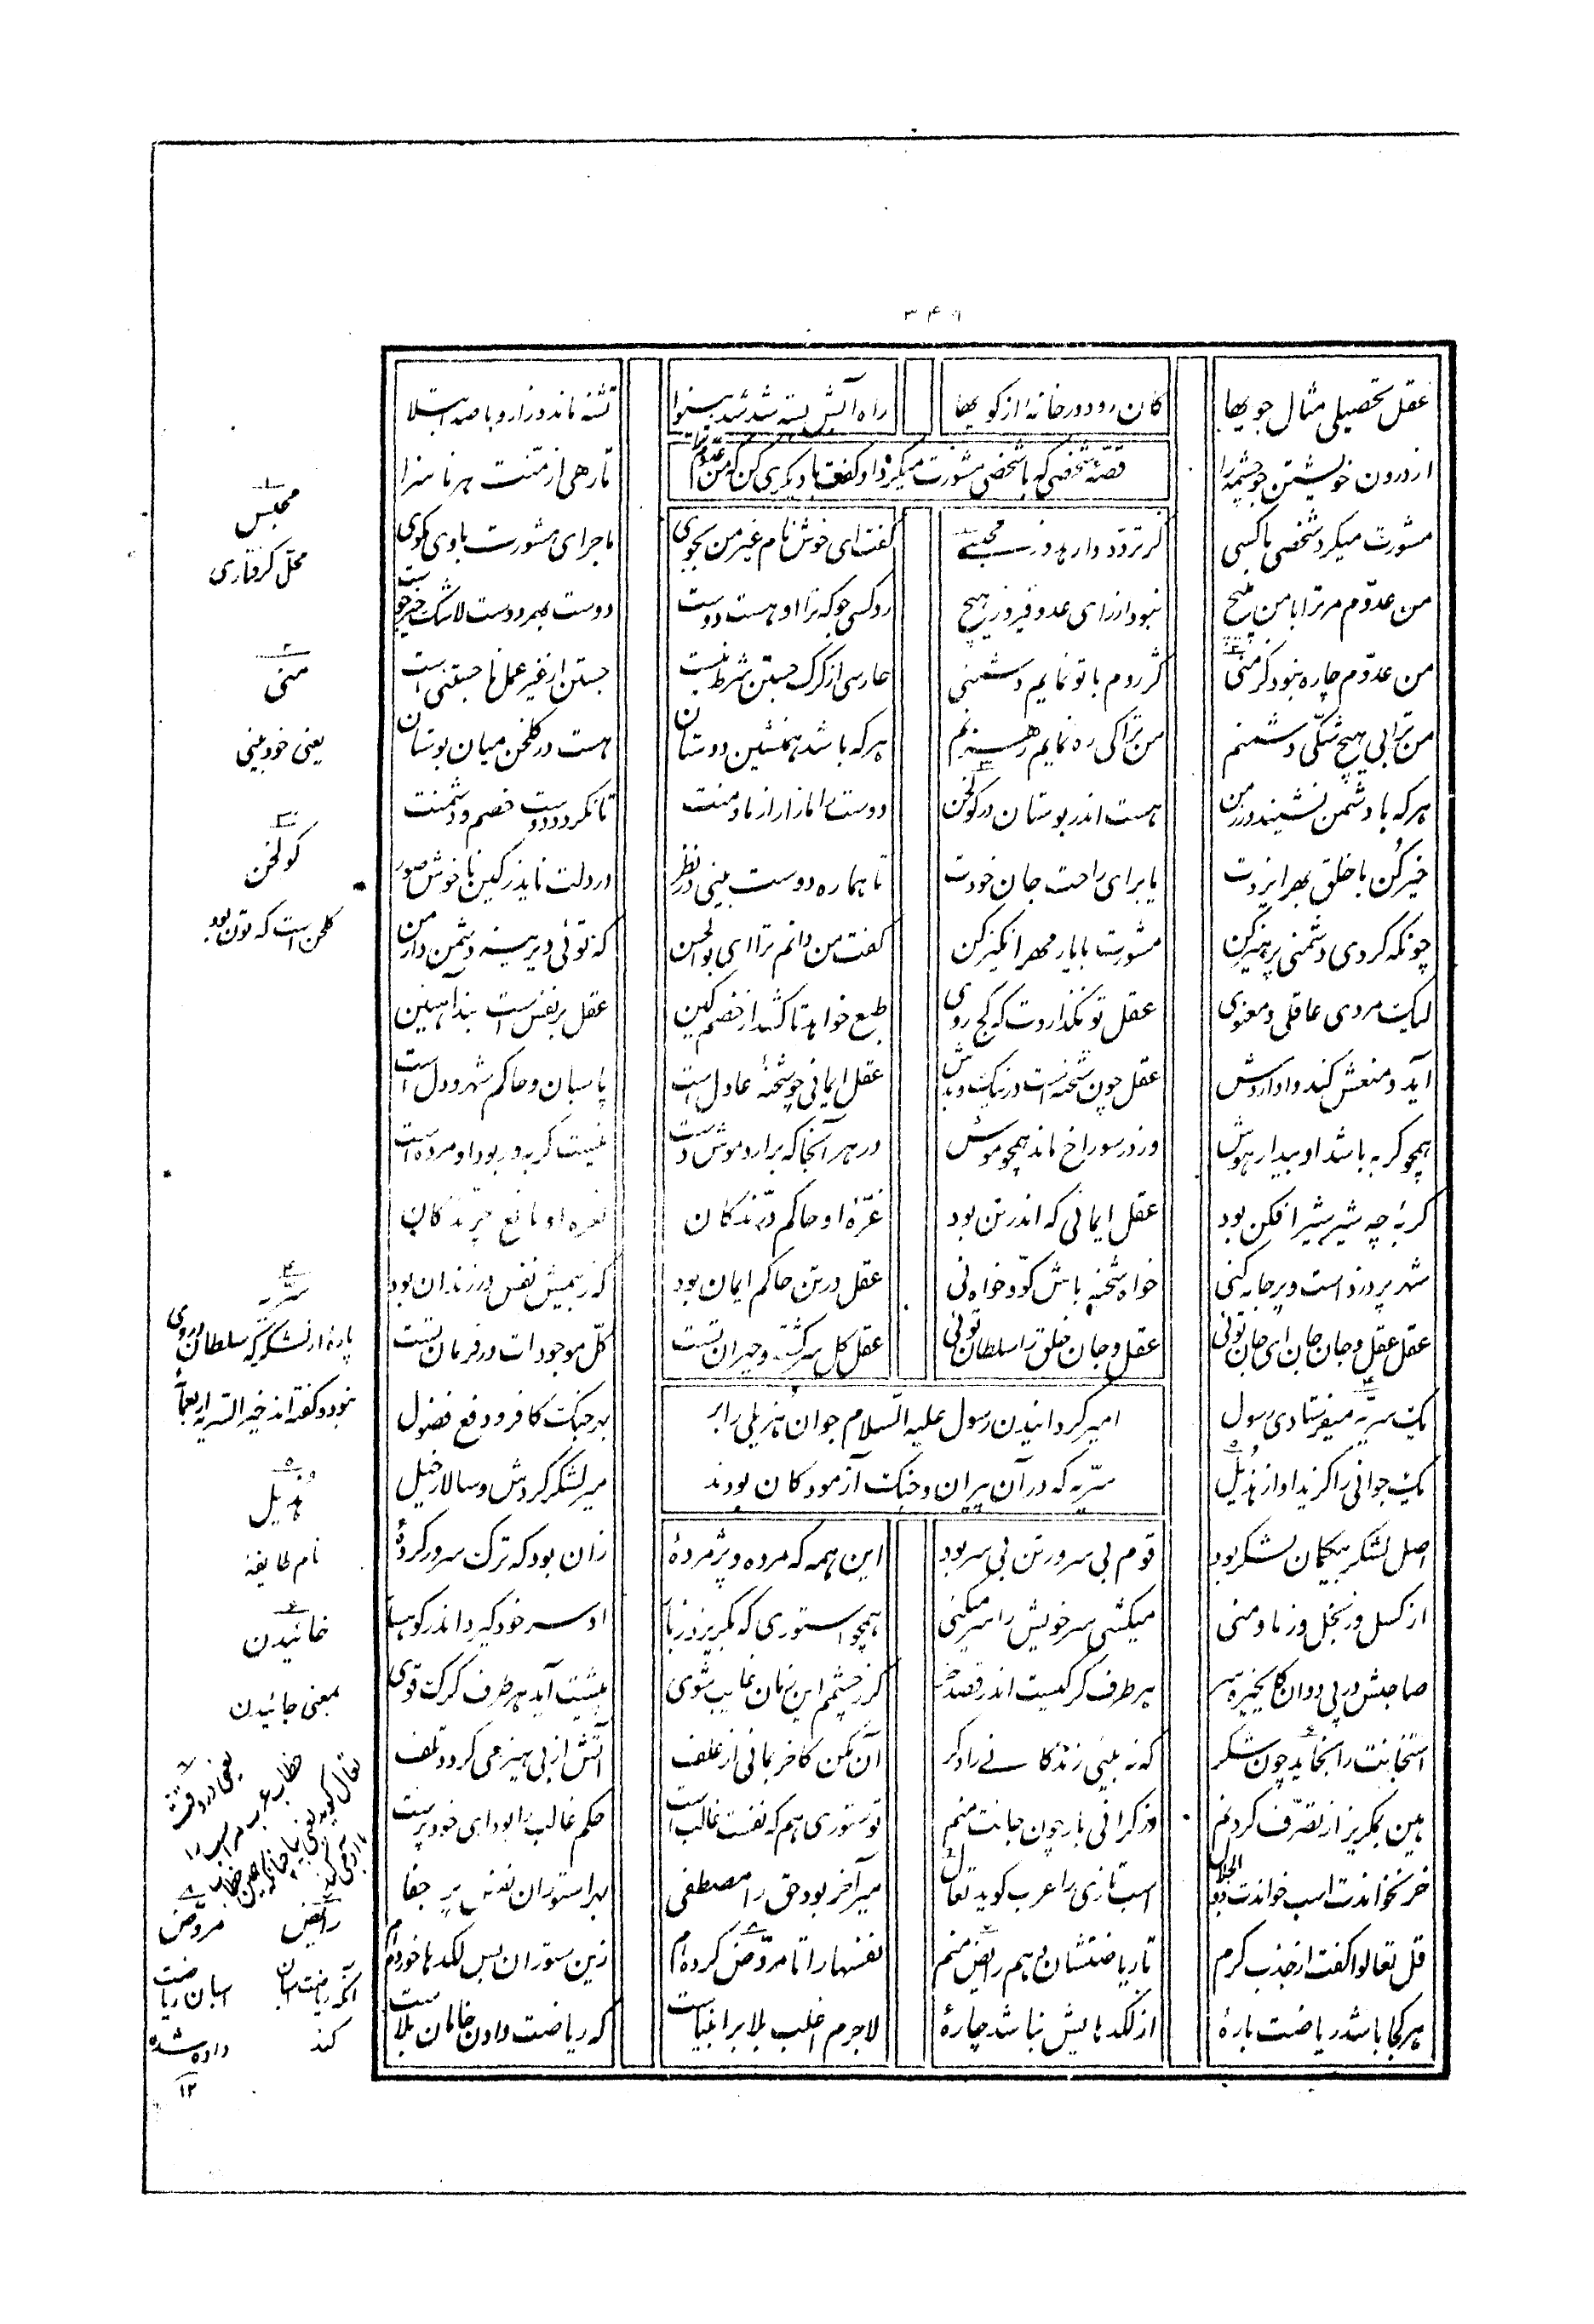 ۳۴۹
عقل تحصیلی مثال جویها کان رود در خانه از کویها راه آبش بسته شد شد بینوا تشنه ماند و زار و با صد ابتلا
از درون خویشتن جو چشمه را تا رهی از منّت هر ناسزا
قصّهٔ شخصی که با شخصی مشورت میکرد او گفت با دیگری کن که من عدوّم ترا
مشورت میکرد شخصی با کسی کز تردّد وارهد وز محبسی گفت ای خوش نام غیر من بجوی ماجرای مشورت با وی بگوی
من عدوّم مر ترا با من مپیچ نبود از رای عدو فیروز هیچ رو کسی جو که ترا او هست دوست دوست بهر دوست لاشک خیرجوست
من عدوّم چاره نبود کز منی کژ روم با تو نمایم دشمنی حارسی از گرگ جستن شرط نیست جستن از غیر عمل ناجستنی است
من ترا بی هیچ شکّی دشمنم من ترا کی ره نمایم رهزنم هر که باشد همنشین دوستان هست در گلخن میان بوستان
هر که با دشمن نشیند در زمن هست اندر بوستان در گولخن دوست را مازار از ما و منت تا نگردد دوست خصم و دشمنت
خیر کن با خلق بهر ایزدت یا برای راحت جان خودت تا هماره دوست بینی در نظر در دلت ناید ز کین ناخوش صور
چونکه کردی دشمنی پرهیز کن مشورت با یار مهرانگیز کن گفت من دانم ترا ای بوالحسن که توئی دیرینه دشمن دار من
لیک مردی عاقلی و معنوی عقل تو نگذاردت که کج روی طبع خواهد تا کشد از خصم کین عقل بر نفس است بند آهنین
آید و منعش کند وا داردش عقل چون شحنه است در نیک و بدش عقل ایمانی چو شحنهٔ عادل است پاسبان و حاکم شهر و دل است
همچو گربه باشد او بیدار هوش دزد در سوراخ ماند همچو موش در هر آنجا که برآرد موش دست نیست گربه ور بود او مرده است
گربهٔ چه شیر شیر افکن بود عقل ایمانی که اندر تن بود غرّهٔ او حاکم درّندگان نعره او مانع چرندگان
شهر پر دزد است و پر جامه کنی خواه شحنه باش کو و خواه نی عقل در تن حاکم ایمان بود که ز بیمش نفس در زندان بود
عقل عقل و جان جان ای جان توئی عقل و جان خلق را سلطان توئی عقل کل سرگشته و حیران تست کلّ موجودات در فرمان تست
امیر گردانیدن رسول علیه السّلام جوان هذیلی را بر
سریّه که در آن پیران و جنگ آزمودگان بودند
یک سریّه میفرستادی رسول بهر جنگ کافر و دفع فضول
یک جوانی را گزید او از هذیل میر لشگر کردش و سالار خیل
اصل لشگر بیگمان لشکر بود قوم بی سرور تن بی سر بود این همه که مرده و پژمردهٔ زان بود که ترک سرور کردهٔ
از کسل وز بخل وز ما و منی میکشی سر خویش را سر میکنی همچو استوری که بگریزد ز بار او سر خود گیرد اندر کوهسار
صاحبش در پی دوان کای خیره سر هر طرف گرگیست اندر قصد خر گر ز چشمم این زمان غایب شوی پیشت آید هر طرف گرگ قوی
استخوانت را بخاید چون شکر که نه بینی زندگانی را دگر آن مگیر کاخر بمانی از علف آتش از بی هیزمی گردد تلف
هین بمگریز از تصرّف کردنم وز گرانی بار چون جانت منم تو ستوری هم که نفست غالب است حکم غالب را بود ای خود پرست
خر نخواندت اسب خواندت ذوالجلال اسب تازی را عرب گوید تعال میر آخر بود حق را مصطفی بهر استوران نفس پر جفا
قل تعالوا گفت از جذب کرم تا ریاضتشان دهم رایض منم نفسها را تا مروّض کرده‌ام زین ستوران بس لگدها خورده‌ام
هر کجا باشد ریاضت بارهٔ از لگدهایش نباشد چارهٔ لاجرم اغلب بلا بر انبیاست که ریاضت دادن خامان بلاست
۱
محبس
محلّ گرفتاری
۲
منی
یعنی خود بینی
۳
گولخن
گلخن است که تون بود
۴
سریّه
پارهٔ از لشگر که سلطان در وی
نبود و گفته‌اند خیر السریّه اربعمأ
۵
هذیل
نام طایفهٔ
۶
خائیدن
بمعنی جائیدن
خطاب عرب مر اسب را
رایض
آنکه ریاضت اسبان
کند
۸
مروّض
اسبان ریاضت
داده شده
۱۲